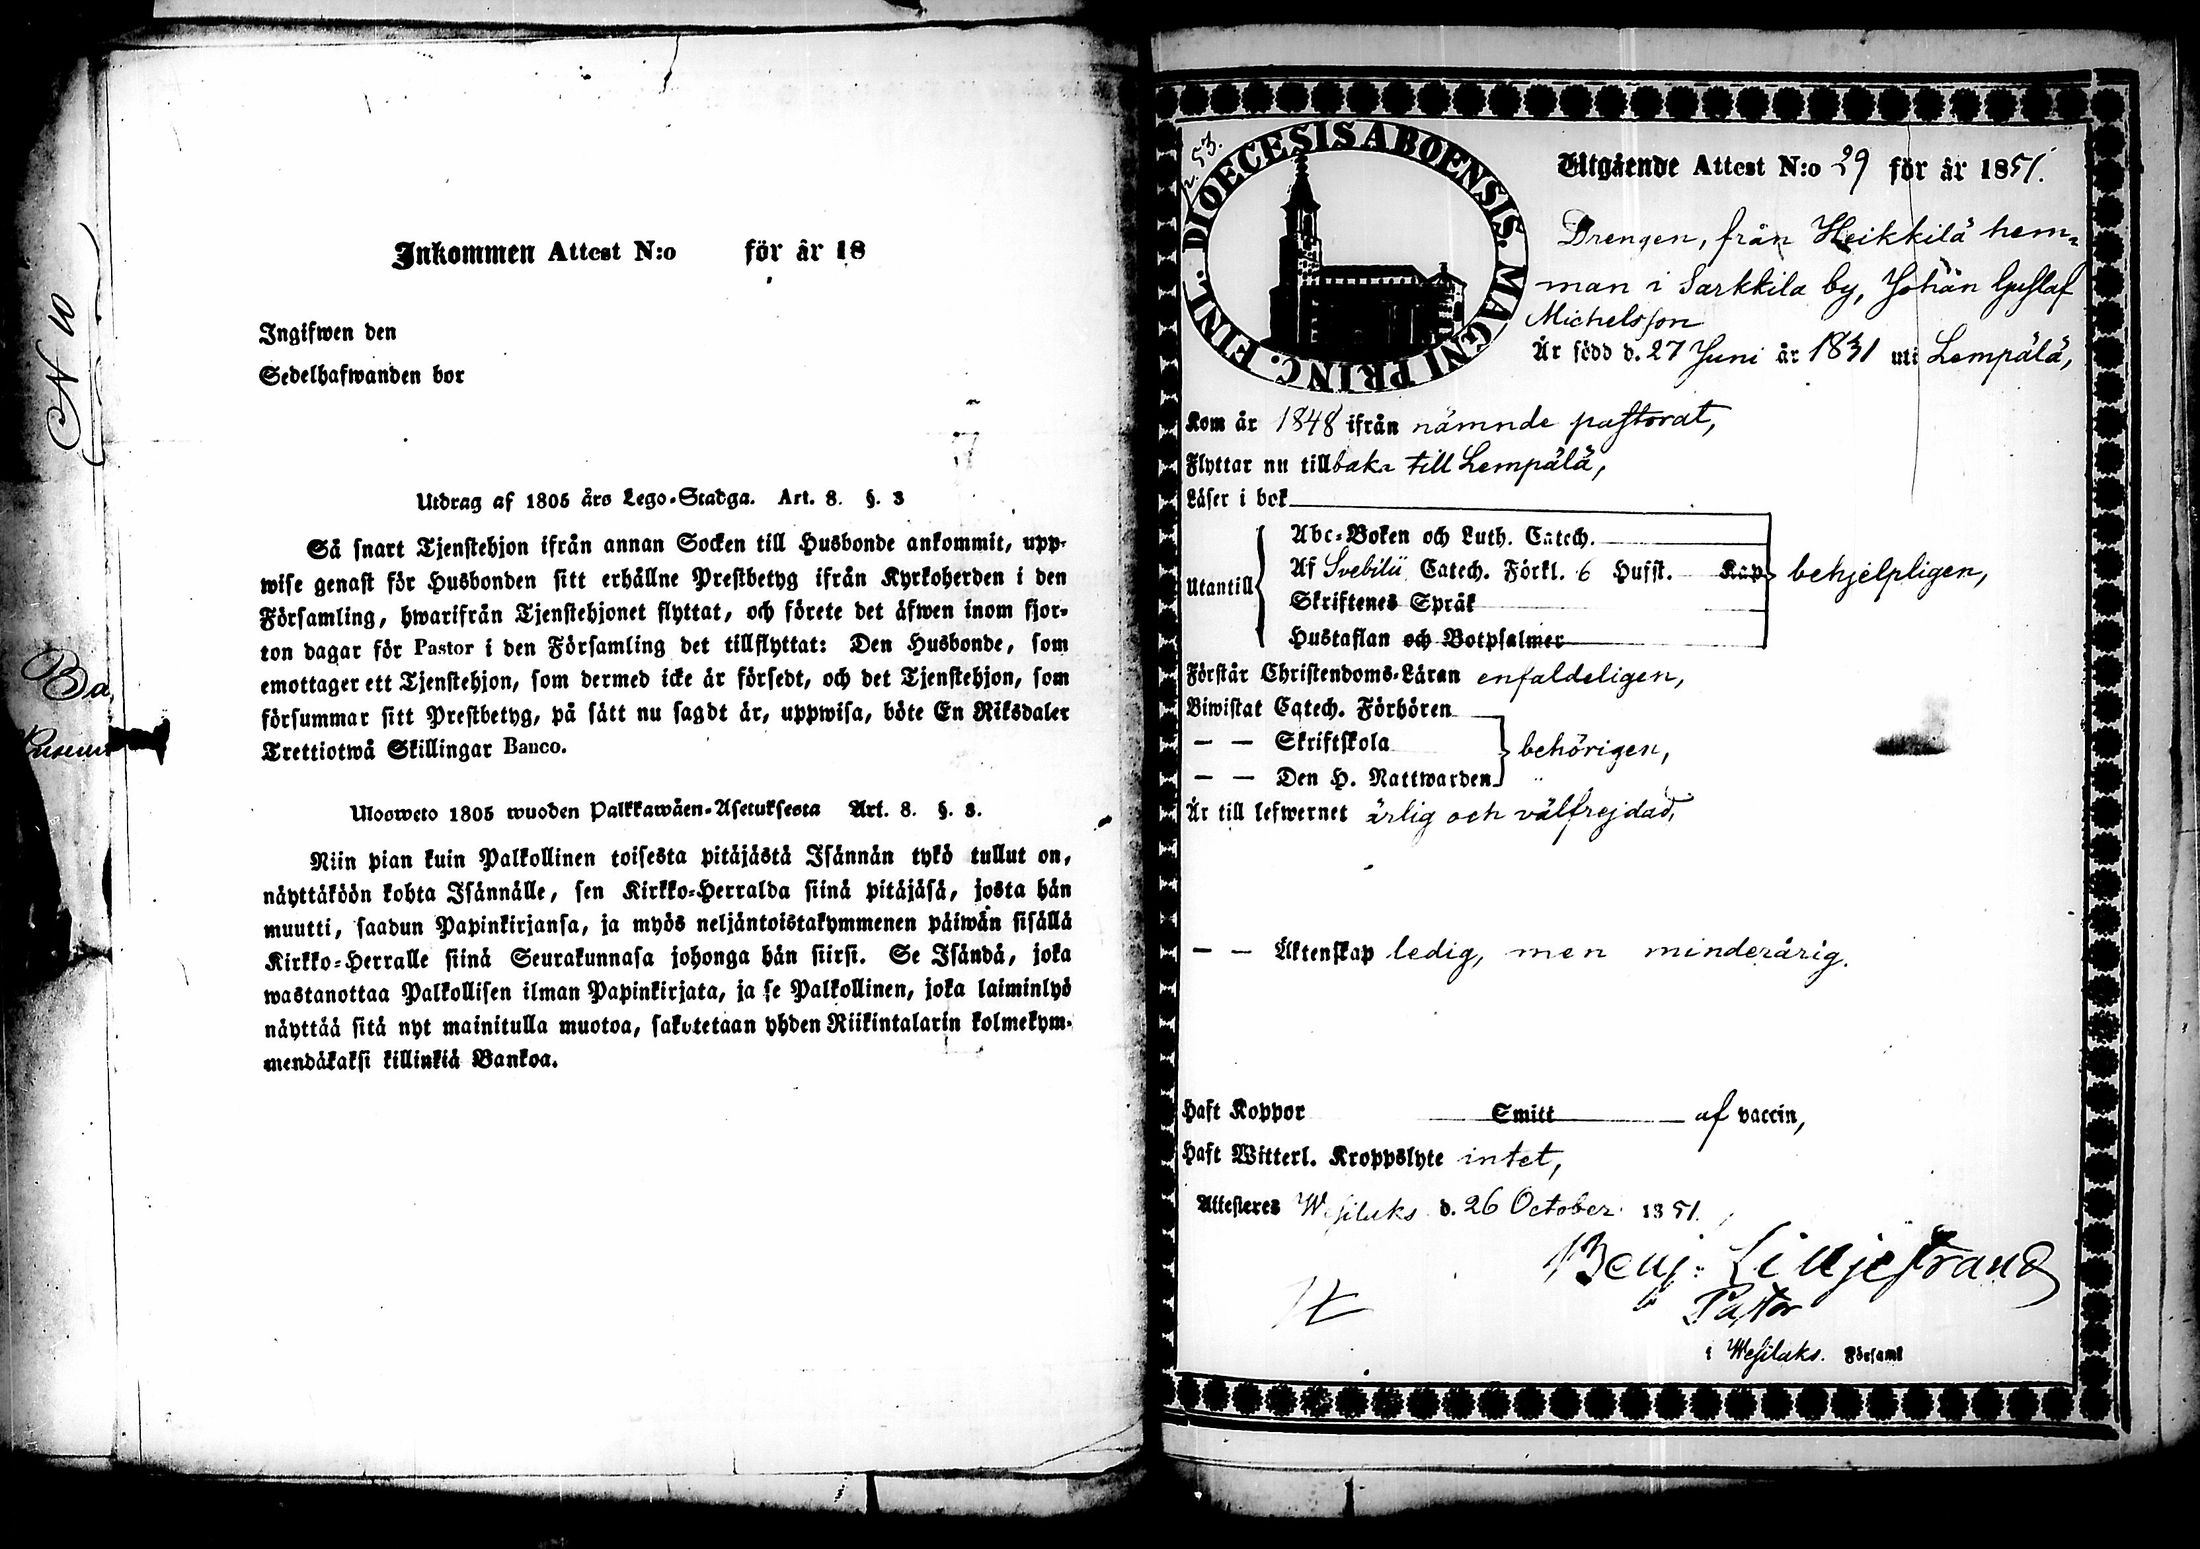 N 10
Ba
Inkommen Attest N:o för år 18
Ingifwen den
Sedelhafwanden bor
Utdrag af 1805 års Lego-Stadga. Art. 8. §. 3
Så snart Tjenstehjon ifrån annan Socken till Husbonde ankommit, upp-
wise genast för Husbonden sitt erhållne Prestbetyg ifrån Kyrkoherden i den
Församling, hwarifrån Tjenstehjonet flyttat, och förete det äfwen inom fjor-
ton dagar för Pastor i den Församling det tillflyttat: Den Husbonde, som
emottager ett Tjenstehjon, som dermed icke är försedt, och det Tjenstehjon, som
försummar sitt Prestbetyg, på sätt nu sagdt är, uppwisa, böte En Riksdaler
Trettiotwå Skillingar Banco.
Ulosweto 1805 wuoden Palkkawäen-Asetuksesta Art. 8. §. 3.
Niin pian kuin Palkollinen toisesta pitäjästä Isännän tykö tullut on,
näyttäköön kohta Isännälle, sen Kirkko-Herralda siinä pitäjäsä, josta hän
muutti, saadun Papinkirjansa, ja myös neljäntoistakymmenen päiwän sisällä
Kirkko-Herralle siinä Seurakunnasa johonga hän siirsi. Se Isändä, joka
wastanottaa Palkollisen ilman Papinkirjata, ja se Palkollinen, joka laiminlyö
näyttää sitä nyt mainitulla muotoa, sakotetaan yhden Riikintalarin kolmekym-
mendäkaksi killinkiä Bankoa.
53.
DIOECESIS ABOENSIS. MAGNI PRINC. FINL.
Utgående Attest N:o 29 för år 1851.
Drengen, från Heikkilä hem-
man i Sarkkila by, Johan Gustaf
Michelsson
Är född d. 27 Juni år 1831 uti Lempälä,
Kom år 1848 ifrån nämnde pastorat,
Flyttar nu tillbaka till Lempälä,
Läser i bok
Utantill
Abc-Boken och Luth. Catech.
Af Svebilii Catech. Förkl. 6 Hufst. Kap
Skriftenes Språk
Hustaflan och Botpsalmer
behjelpligen,
Förstår Christendoms-Läran enfaldeligen,
Biwistat Catech. Förhören
— — Skriftskola
— — Den H. Nattwarden
behörigen,
Är till lefwernet ärlig och välfrejdad,
— — Äktenskap ledig, men minderårig.
Haft Koppor Smitt af vaccin,
Haft Witterl. Kroppslyte intet,
Attesteres Wesilaks d. 26 October 1851.
Benj: Liljestrand
Pastor
i Wesilaks. Församl